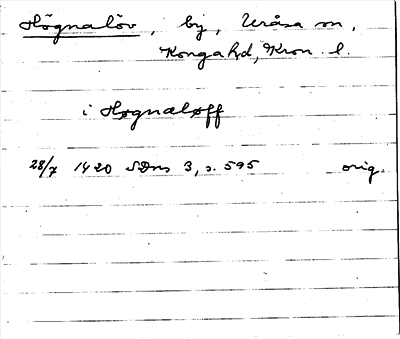 Högnalöv, by, Uråsa sn,
Konga hd, Kron. l.
i Høgnaløff
28/7 1420 SDns 3, s. 595 orig.